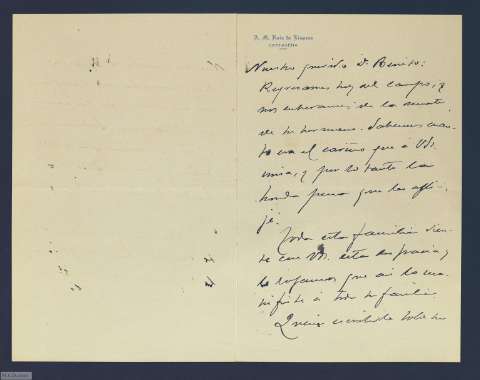 A. M. Ruiz de
Nuestro querido D. Benito:
Regresamos hoy del campo, y
nos enteramos de la muerte
de su hermano. Sabemos cuan-
to era el cariño que á Vds.
unía, y por lo tanto la
honda pena que les afli-
je.
Toda esta familia sien-
te con Vds. esta desgracia, y
le rogamos que así lo ma-
nifieste á toda su familia.